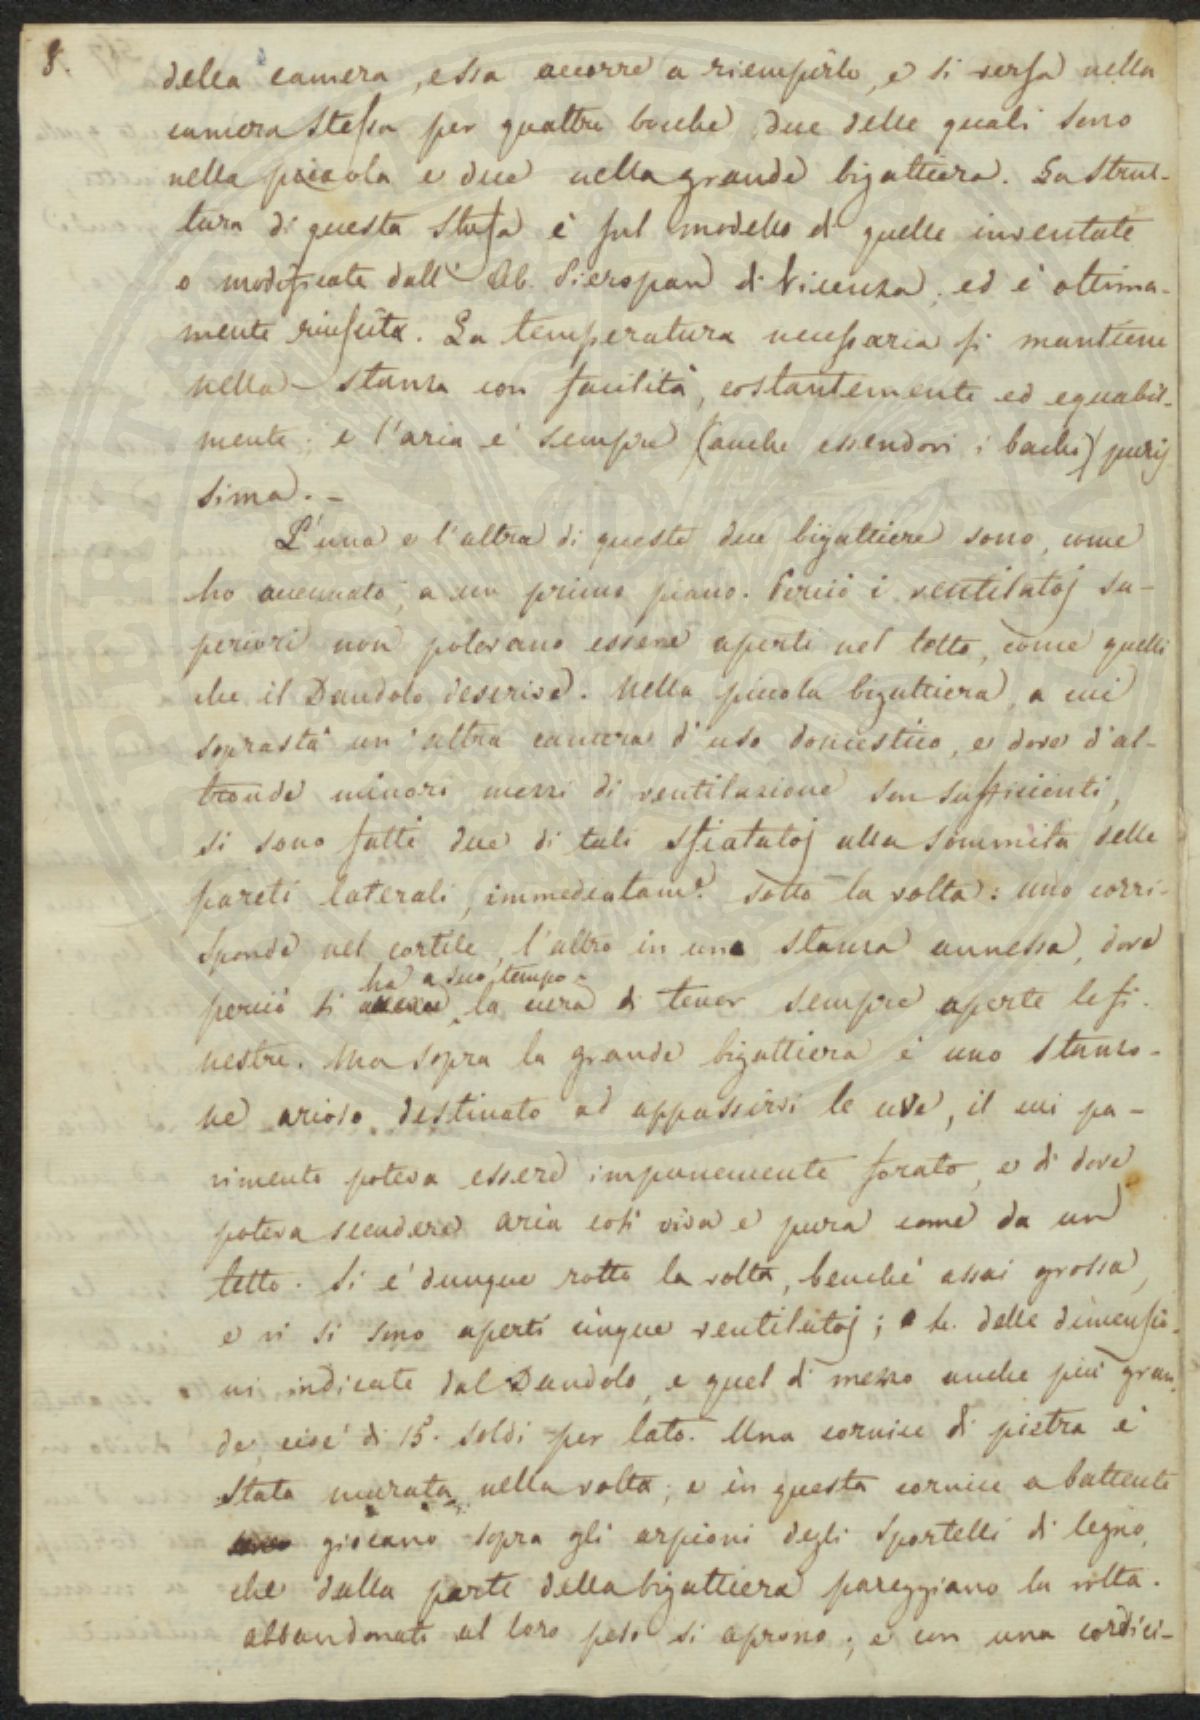 8.
della camera, essa accorre a riempirlo, e si versa nella
camera stessa per quattro bocche, due delle quali sono
nella piccola e due nella grande bigattiera. La strut-
tura di questa stufa è sul modello di quelle inventate
o modificate dall' Ab. Pieropan di Vicenza, ed è ottima-
mente riuscita. La temperatura necessaria si mantiene
nella stanza con facilità, costantemente ed equabil-
mente; e l'aria è sempre (anche essendovi i bachi) puris
sima. -
L'una e l'altra di queste due bigattiere sono, come
ho accennato, a un primo piano. Perciò i ventilatoj su-
periori non potevano essere aperti nel tetto, come quelli
che il Dandolo descrive. Nella piccola bigattiera, a cui
soprastà un'altra camera d'uso domestico, e dove d'al-
tronde minori mezzi di ventilazione son sufficienti,
si sono fatti due di tali sfiatatoj alla sommità delle
pareti laterali, immediatam.e sotto la volta: uno corri-
sponde nel cortile, l'altro in una stanza annessa, dove
ha a suo tempo
perciò si la cura di tener sempre aperte le fi-
nestre. Ma sopra la grande bigattiera è uno stanzo-
ne arioso, destinato ad appassirvi le uve, il cui pa-
vimento poteva essere impunemente forato, e di dove
poteva scendere aria così viva e pura come da un
tetto. Si è dunque rotto la volta, benchè assai grossa,
e vi si sono aperti cinque ventilatoj; delle dimensio-
ni indicate dal Dandolo, e quel di mezzo anche più gran
de, cioè di 15. soldi per lato. Una cornice di pietra è
stata murata nella volta; e in questa cornice a battente
giocano sopra gli arpioni degli sportelli di legno,
che dalla parte della bigattiera pareggiano la volta.
abbandonati al loro peso si aprono; e con una cordici-